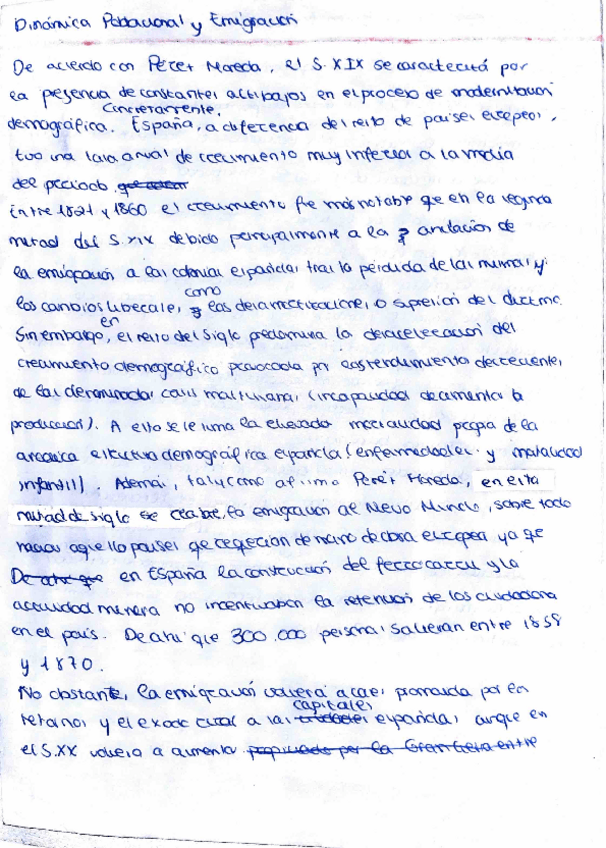 Dinámica Poblacional y Emigración
De acuerdo con Pérez Moreda, el S.XIX se caracterizó por
la presencia de constantes altibajos en el proceso de modernización
demográfica. Concretamente, España, a diferencia del resto de países europeos,
tuvo una tasa anual de crecimiento muy inferior a la media
del periodo.
Entre 1821 y 1860 el crecimiento fue más notable que en la segunda
mitad del S.XIX debido principalmente a la anulación de
la emigración a las colonias españolas tras la pérdida de las mismas y
los cambios liberales, como las desamortizaciones o supresión del diezmo.
Sin embargo, en el resto del siglo predomina la desaceleración del
crecimiento demográfico provocada por los rendimientos decrecientes
de las denominadas crisis malthusianas (incapacidad de aumentar la
producción). A esto se le suma la elevada mortalidad propia de la
arcaica estructura demográfica española (enfermedades y mortalidad
infantil). Además, tal y como afirma Pérez Moreda, en esta
mitad de siglo se reabre la emigración al Nuevo Mundo, sobre todo
hacia aquellos países que requerían de mano de obra europea ya que
en España la construcción del ferrocarril y la
actividad minera no incentivaban la retención de los ciudadanos
en el país. De ahí que 300.000 personas salieran entre 1858
y 1870.
No obstante, la emigración volverá a caer promovida por los
retornos y el éxodo rural a las capitales españolas, aunque en
el S.XX volverá a aumentar propiciado por la Gran Guerra entre